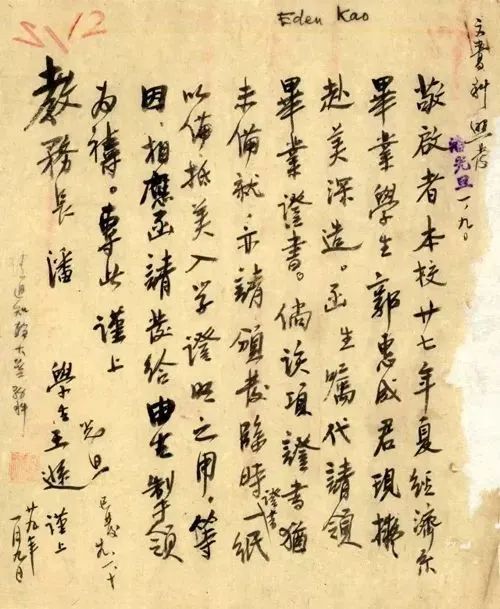 Eden Kao
文書科照發
潘光旦 一、九、
敬啟者本校廿七年夏經濟系
畢業學生郭惠成君現擬
赴美深造。函生囑代請領
畢業證書。倘該項證書猶
未備就,亦請頒發臨時證書一紙
以備抵美入学證明之用,等
因,相應函請發給由生制領
为禱。專此 谨上
教務長潘 光旦
已發
學生王遜 谨上
廿九年
一月九日